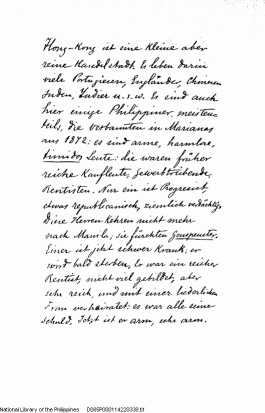 Hong-Kong ist eine kleine aber
reine Handelstadt. Es leben darin
viele Portugiesen, Engländer, Chinesen
Juden, Indier u. s. w. Es sind auch
hier einige Philippiner, meisten-
teils, die verbannten in Marianas
aus 1872: es sind arme, harmlose,
timidos Leute: die waren früher
reiche Kaufleute, Gewerbtreibender,
Rentisten. Nur ein ist Progresist,
etwas republicanisch, ziemlich verdächtig.
Diese Herren kehren nicht mehr
nach Manila, sie fürchten
Einer ist jetzt schwer krank, er
wird bald sterben. Er war ein reicher
Rentist, nicht viel gebildet, aber
sehr reich, und mit einer liederlichen
Frau verheiratet: es war alle seine
Schuld. Jetzt ist er arm, sehr arm.
National Library of the Philippines